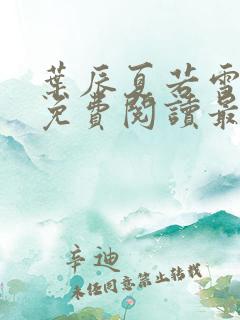 葉辰夏若雪
免費閱讀最
辛迪
未經同意禁止轉載